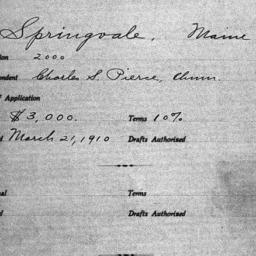 Springvale, Maine
ion 2000
ndent Charles S. Pierce, Chmn.
f Application
$3,000. Terms 10%
d March 21, 1910 Drafts Authorised
al Terms
d Drafts Authorised